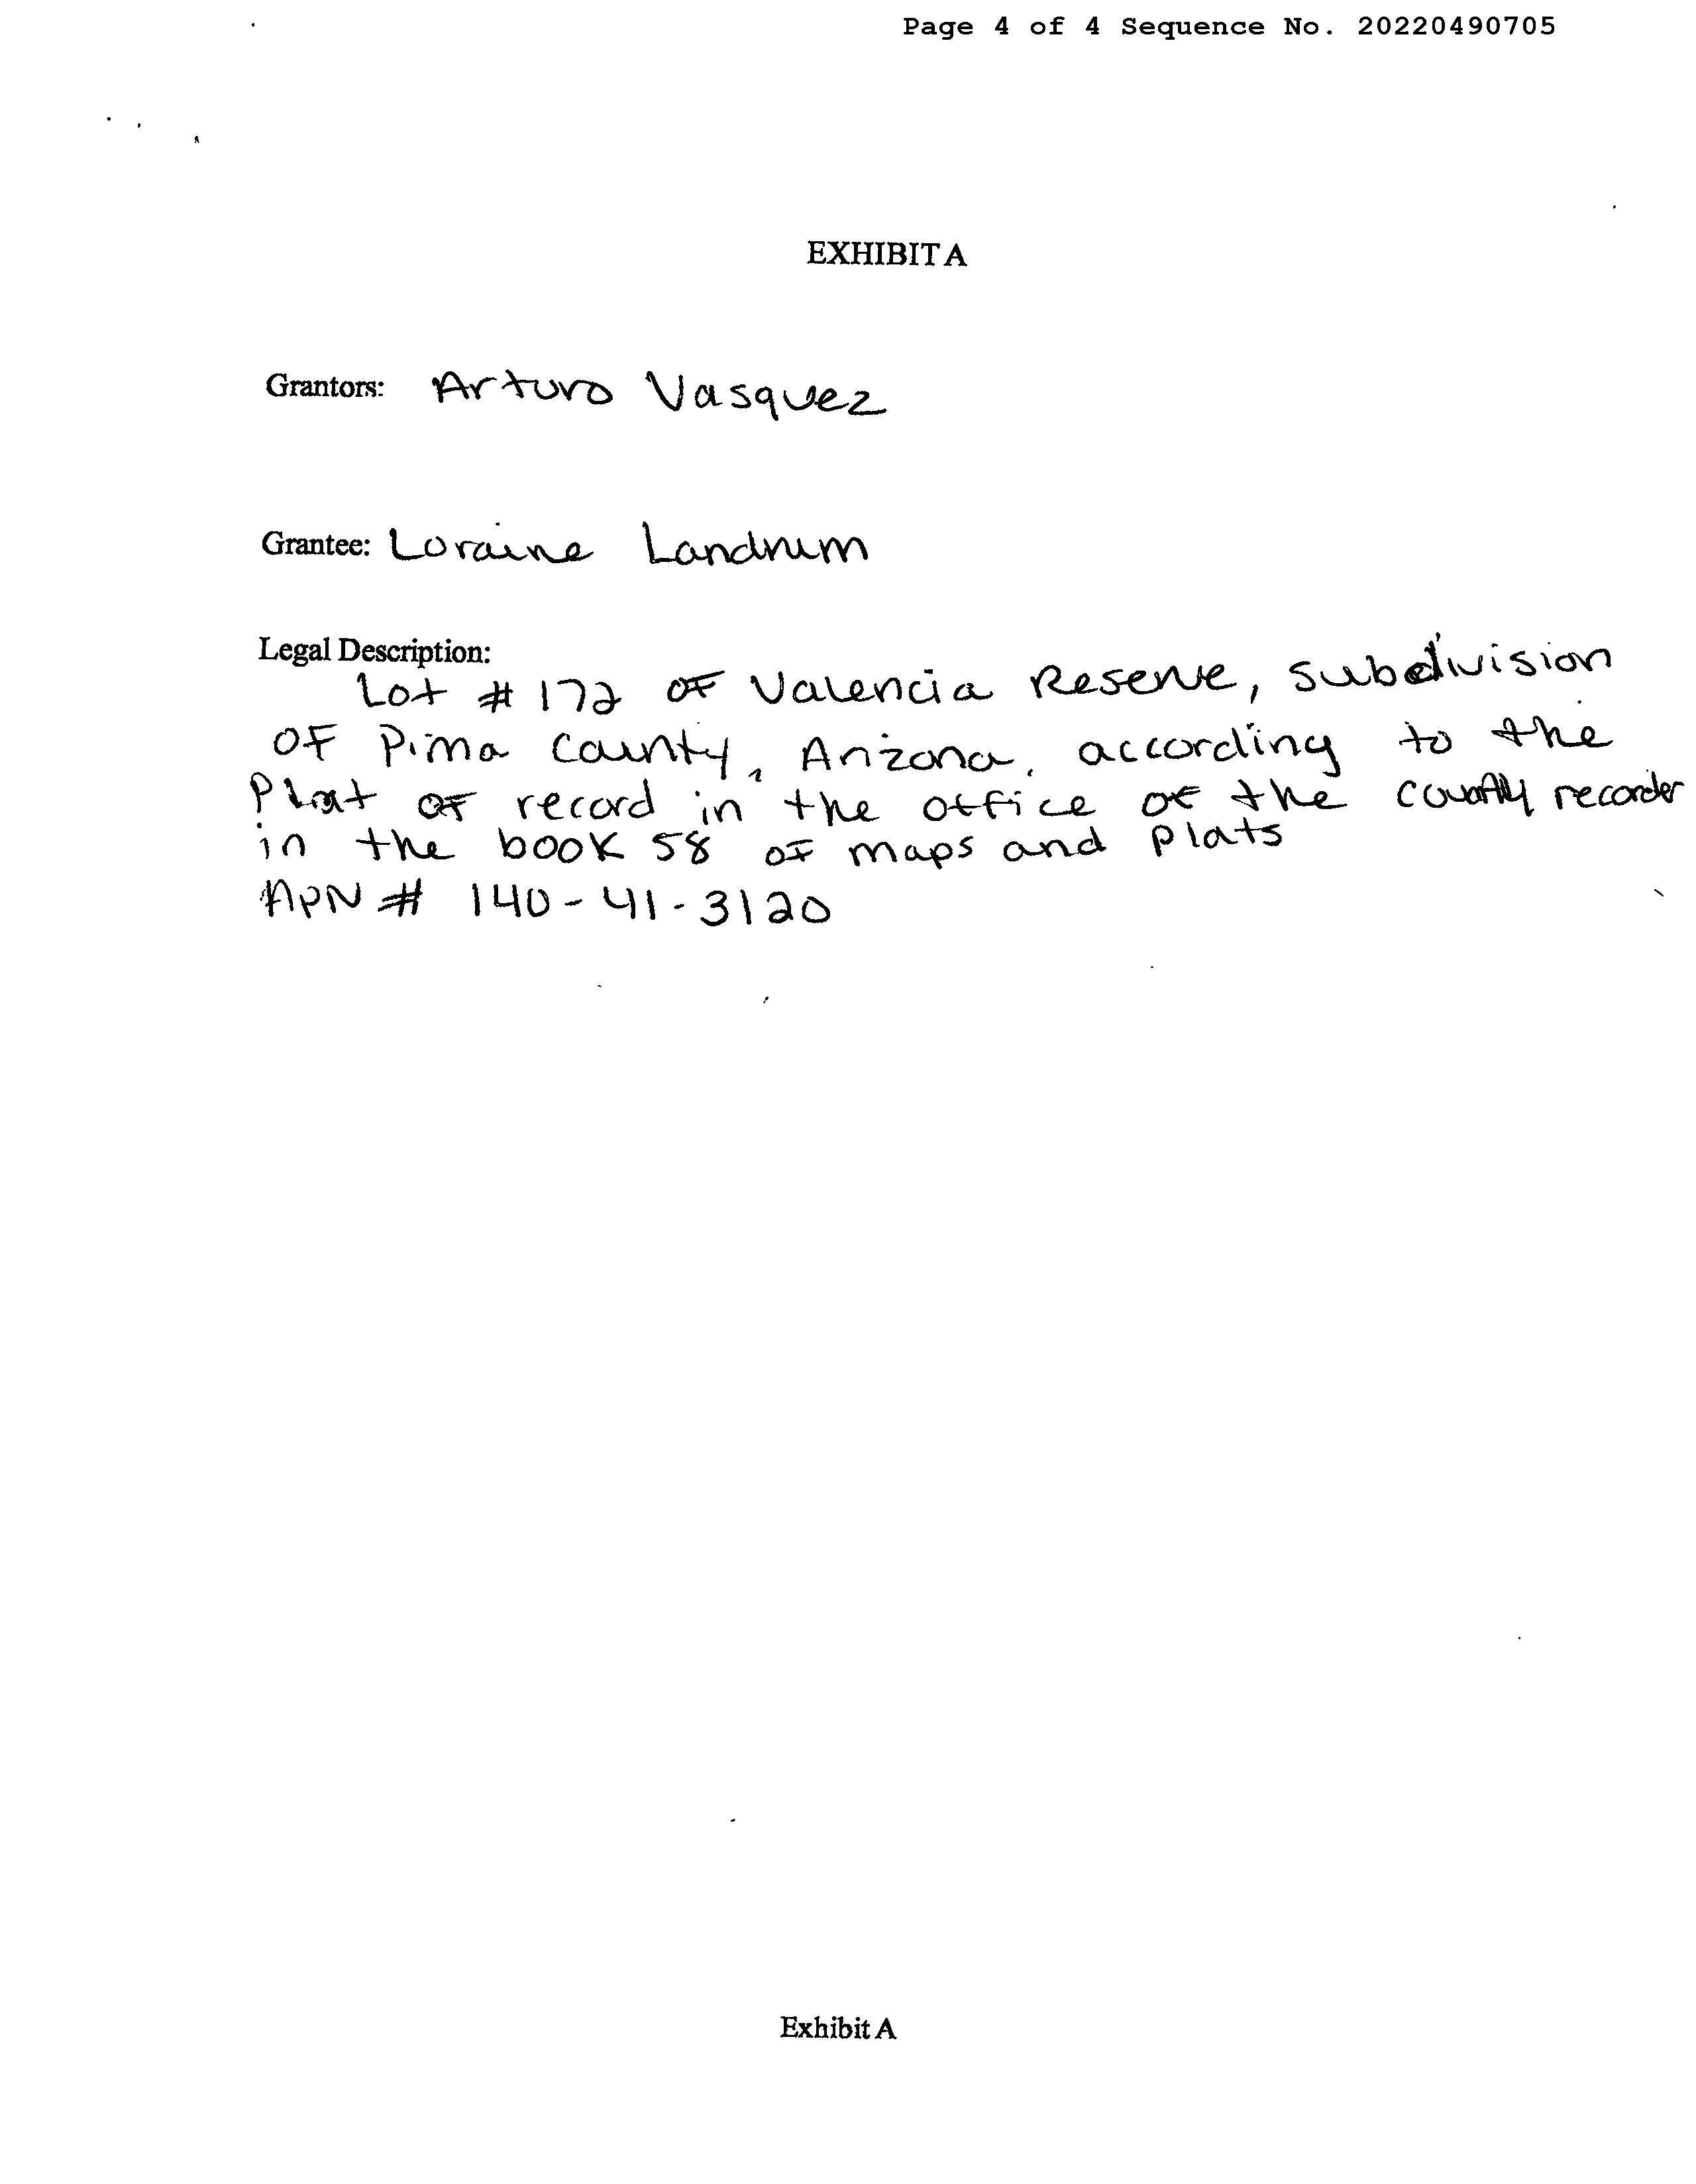 Page 4 of 4 Sequence No. 20220490705
EXHIBIT A
Grantors: Arturo Vasquez
Grantee: Loraine Landrum
Legal Description:
Lot # 172 of Valencia Reserve, subdivision
of Pima County, Arizona, according to the
Plat of record in the office of the county recorder
in the book 58 of maps and plats
APN # 140-41-3120
Exhibit A